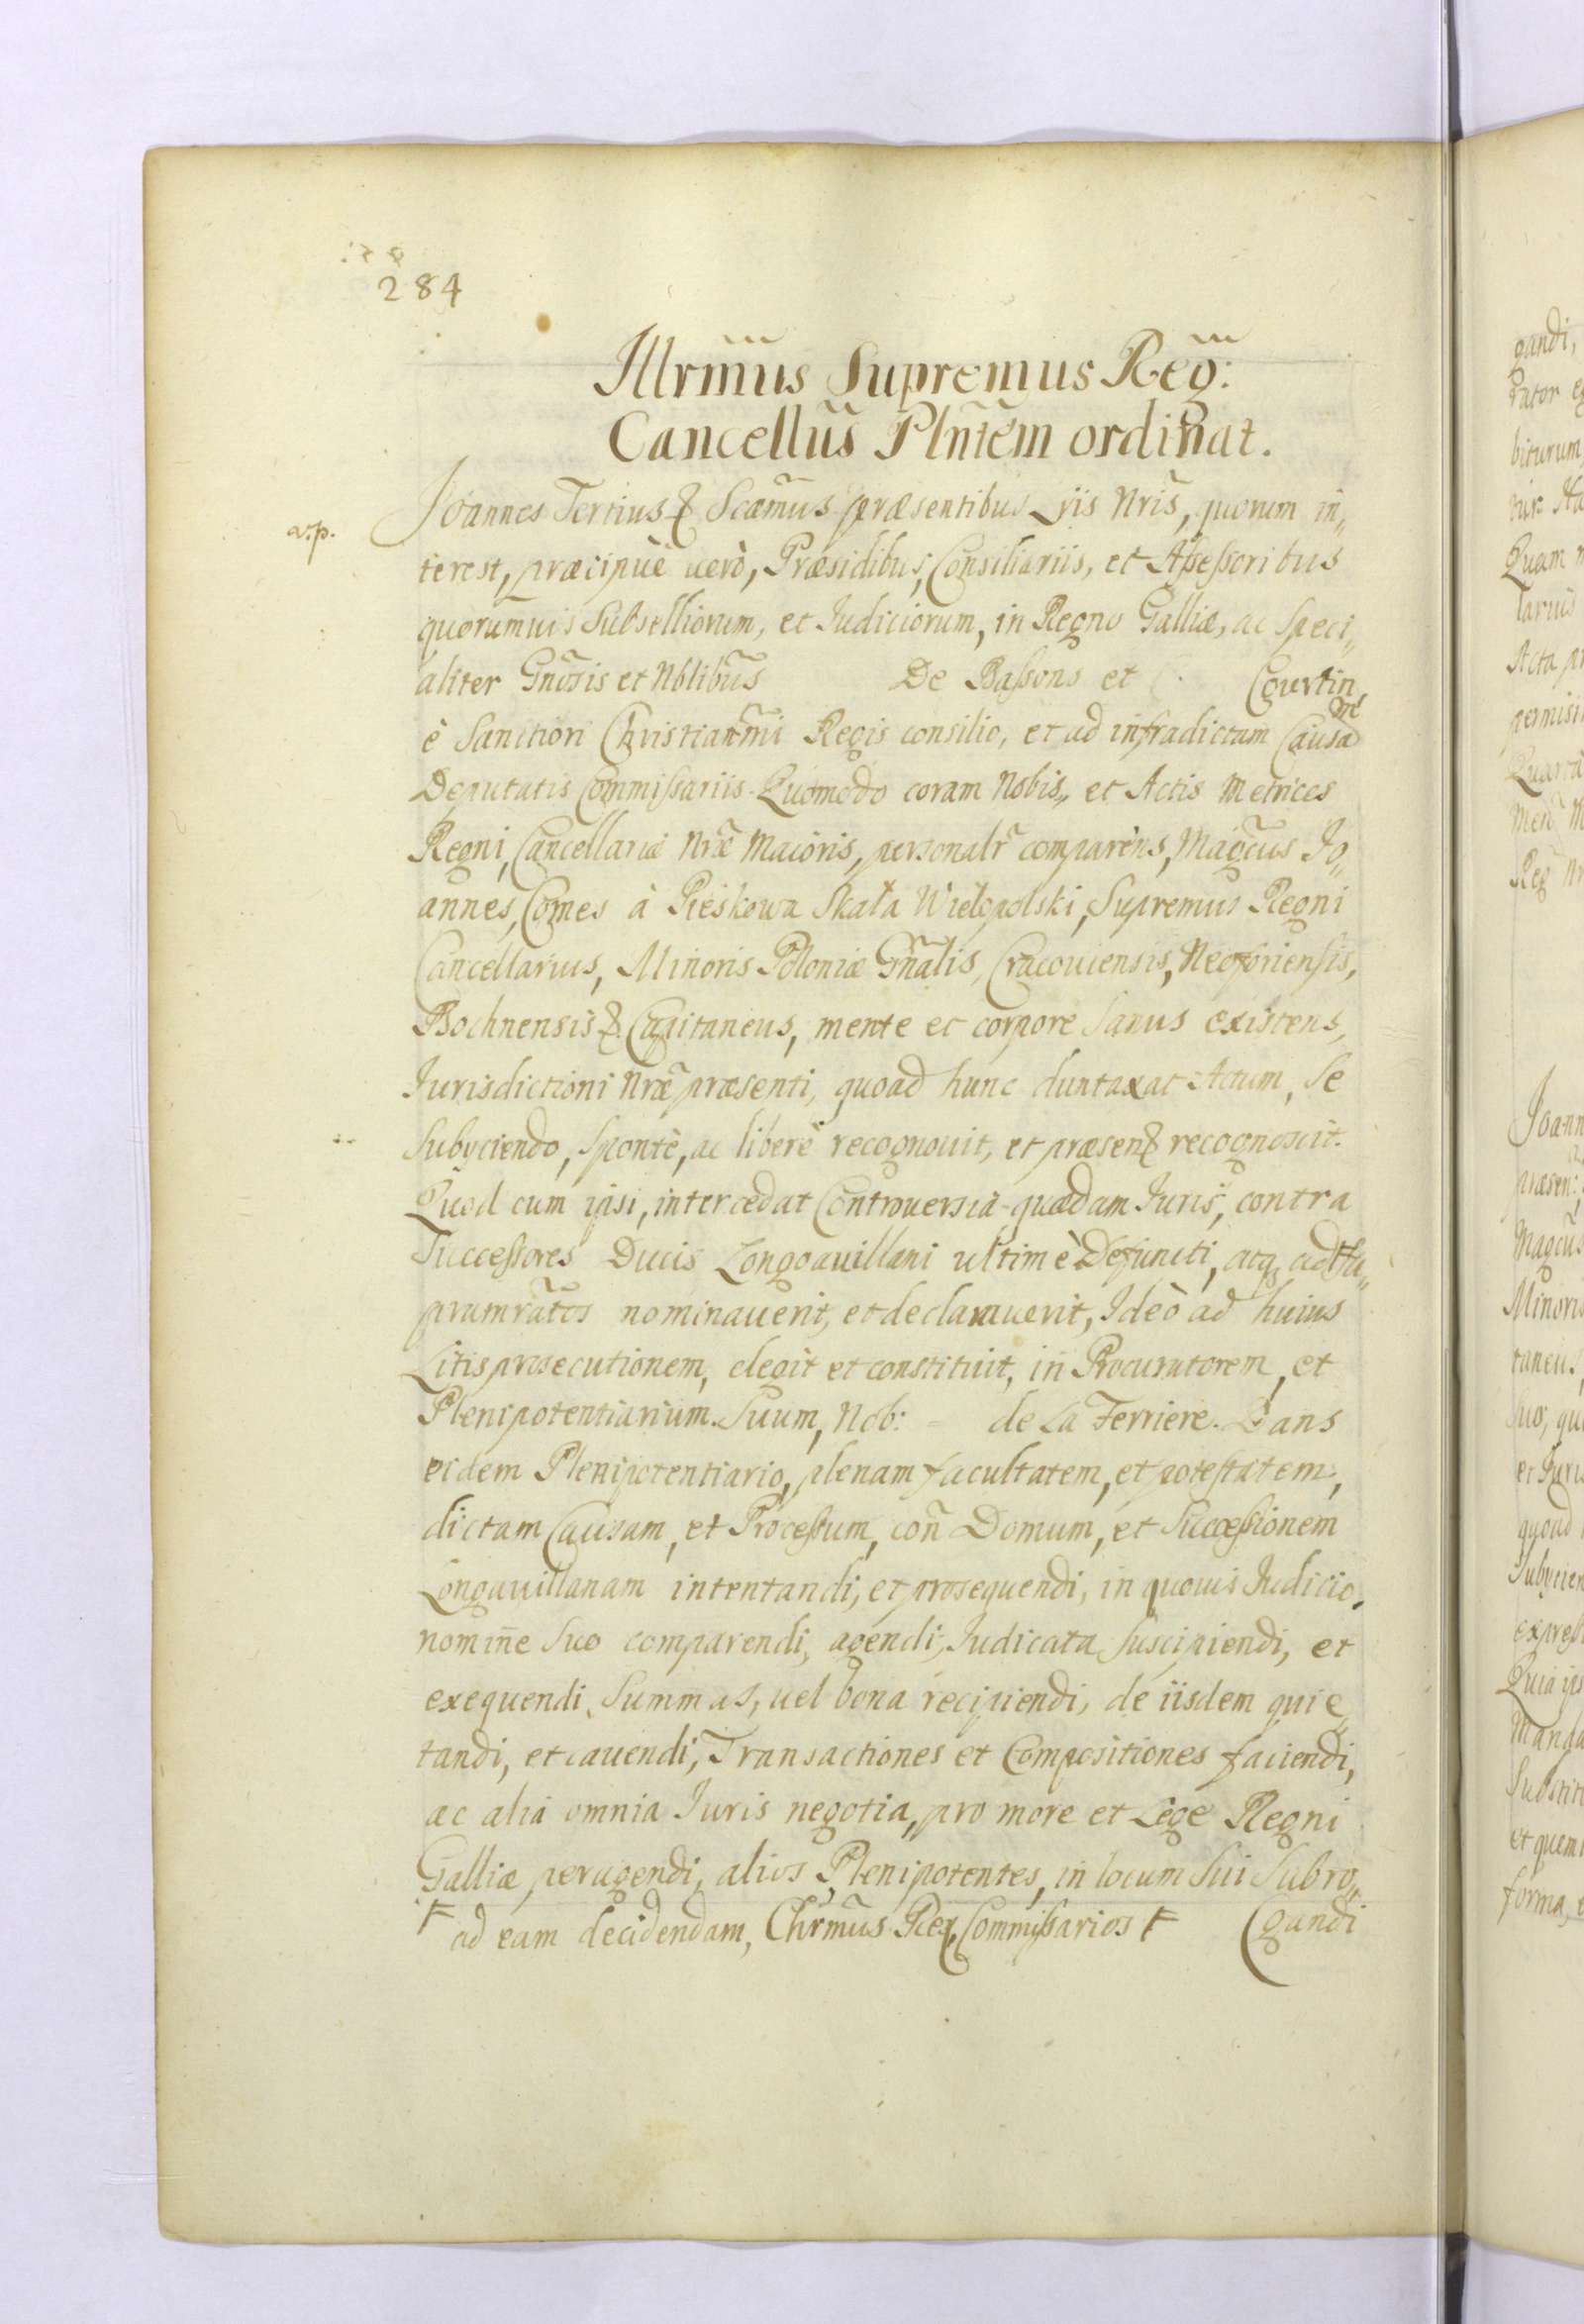 284
Illrmus Supremus Reg:
Cancellus Plntem ordinat.
Joannes Tertius & Scamus præsentibus Lris Nris, quorum in„
v.p.
terest, præcipuè uerò, Præsidibus, Consiliariis, et Assessoribus
quorumuis Subselliorum, et Judiciorum, in Regno Galliæ, ac speci„
aliter Gnosis et Nblibus De Bassons et Courtin,
è Sanctiori Christianmi Regis consilio, et ad infradictam Causam
Deputatis Commissariis. Quomodo coram Nobis, et Actis Metrices
Regni, Cancellariæ Nræ Maioris, personalr comparens, Magcus Jo„
annes, Comes à Pieskowa Skała Wielopolski, Supremus Regni
Cancellarius, Minoris Poloniæ Gnalis, Cracouiensis, Neoforiensis,
Bochnensis & Capitaneus, mente et corpore sanus existens,
Jurisdictioni Nræ præsenti, quoad hunc duntaxat Actum, se
subyciendo, spontè, ac liberè recognouit, et præsen& recognoscit.
Quod cum ipsi, intercedat Controuersia quædam Juris, contra
Successores Ducis Longoauillani ultimè Defuncti, atq, ad
prumratos nominauerit, et declarauerit, Ideò ad huius
Litis prosecutionem, elegit et constituit, in Procuratorem, et
Plenipotentiarium Suum, Nob: de La Ferriere. Dans
eidem Plenipotentiario, plenam facultatem, et potestatem,
dictam Causam, et Processum, con Domum, et Successionem
Longauillanam intentandi, et prosequendi, in quouis Judicio,
nomine suo comparendi, agendi, Judicata suscipiendi, et
exequendi, Summas, uel bona recipiendi, de iisdem quie„
tandi, et cauendi, Transactiones et Compositiones faciendi,
ac alia omnia Juris negotia, pro more et Lege Regni
Galliæ, peragendi, alios Plenipotentes, in locum sui subro„
(gandi
ad eam decidendam, Chrmus Rex, Commissarios
gandi,